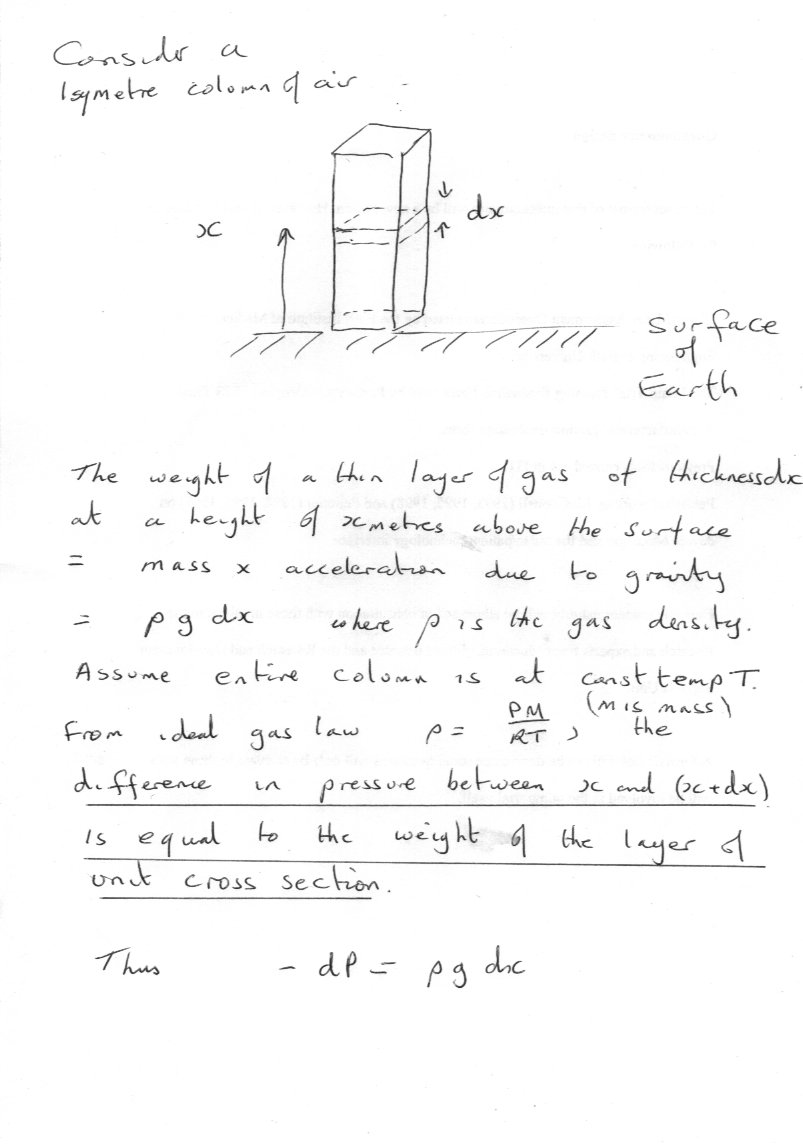 Consider a
1sqmetre column of air
x
dx
Surface
of
Earth
The weight of a thin layer of gas of thickness dx
at a height of x metres above the surface
= mass x acceleration due to gravity
= ρ g dx where ρ is the gas density.
Assume entire column is at const temp T.
(M is mass)
From ideal gas law ρ = PM/RT, the
difference in pressure between x and (x+dx)
is equal to the weight of the layer of
unit cross section.
Thus - dP = ρ g dx